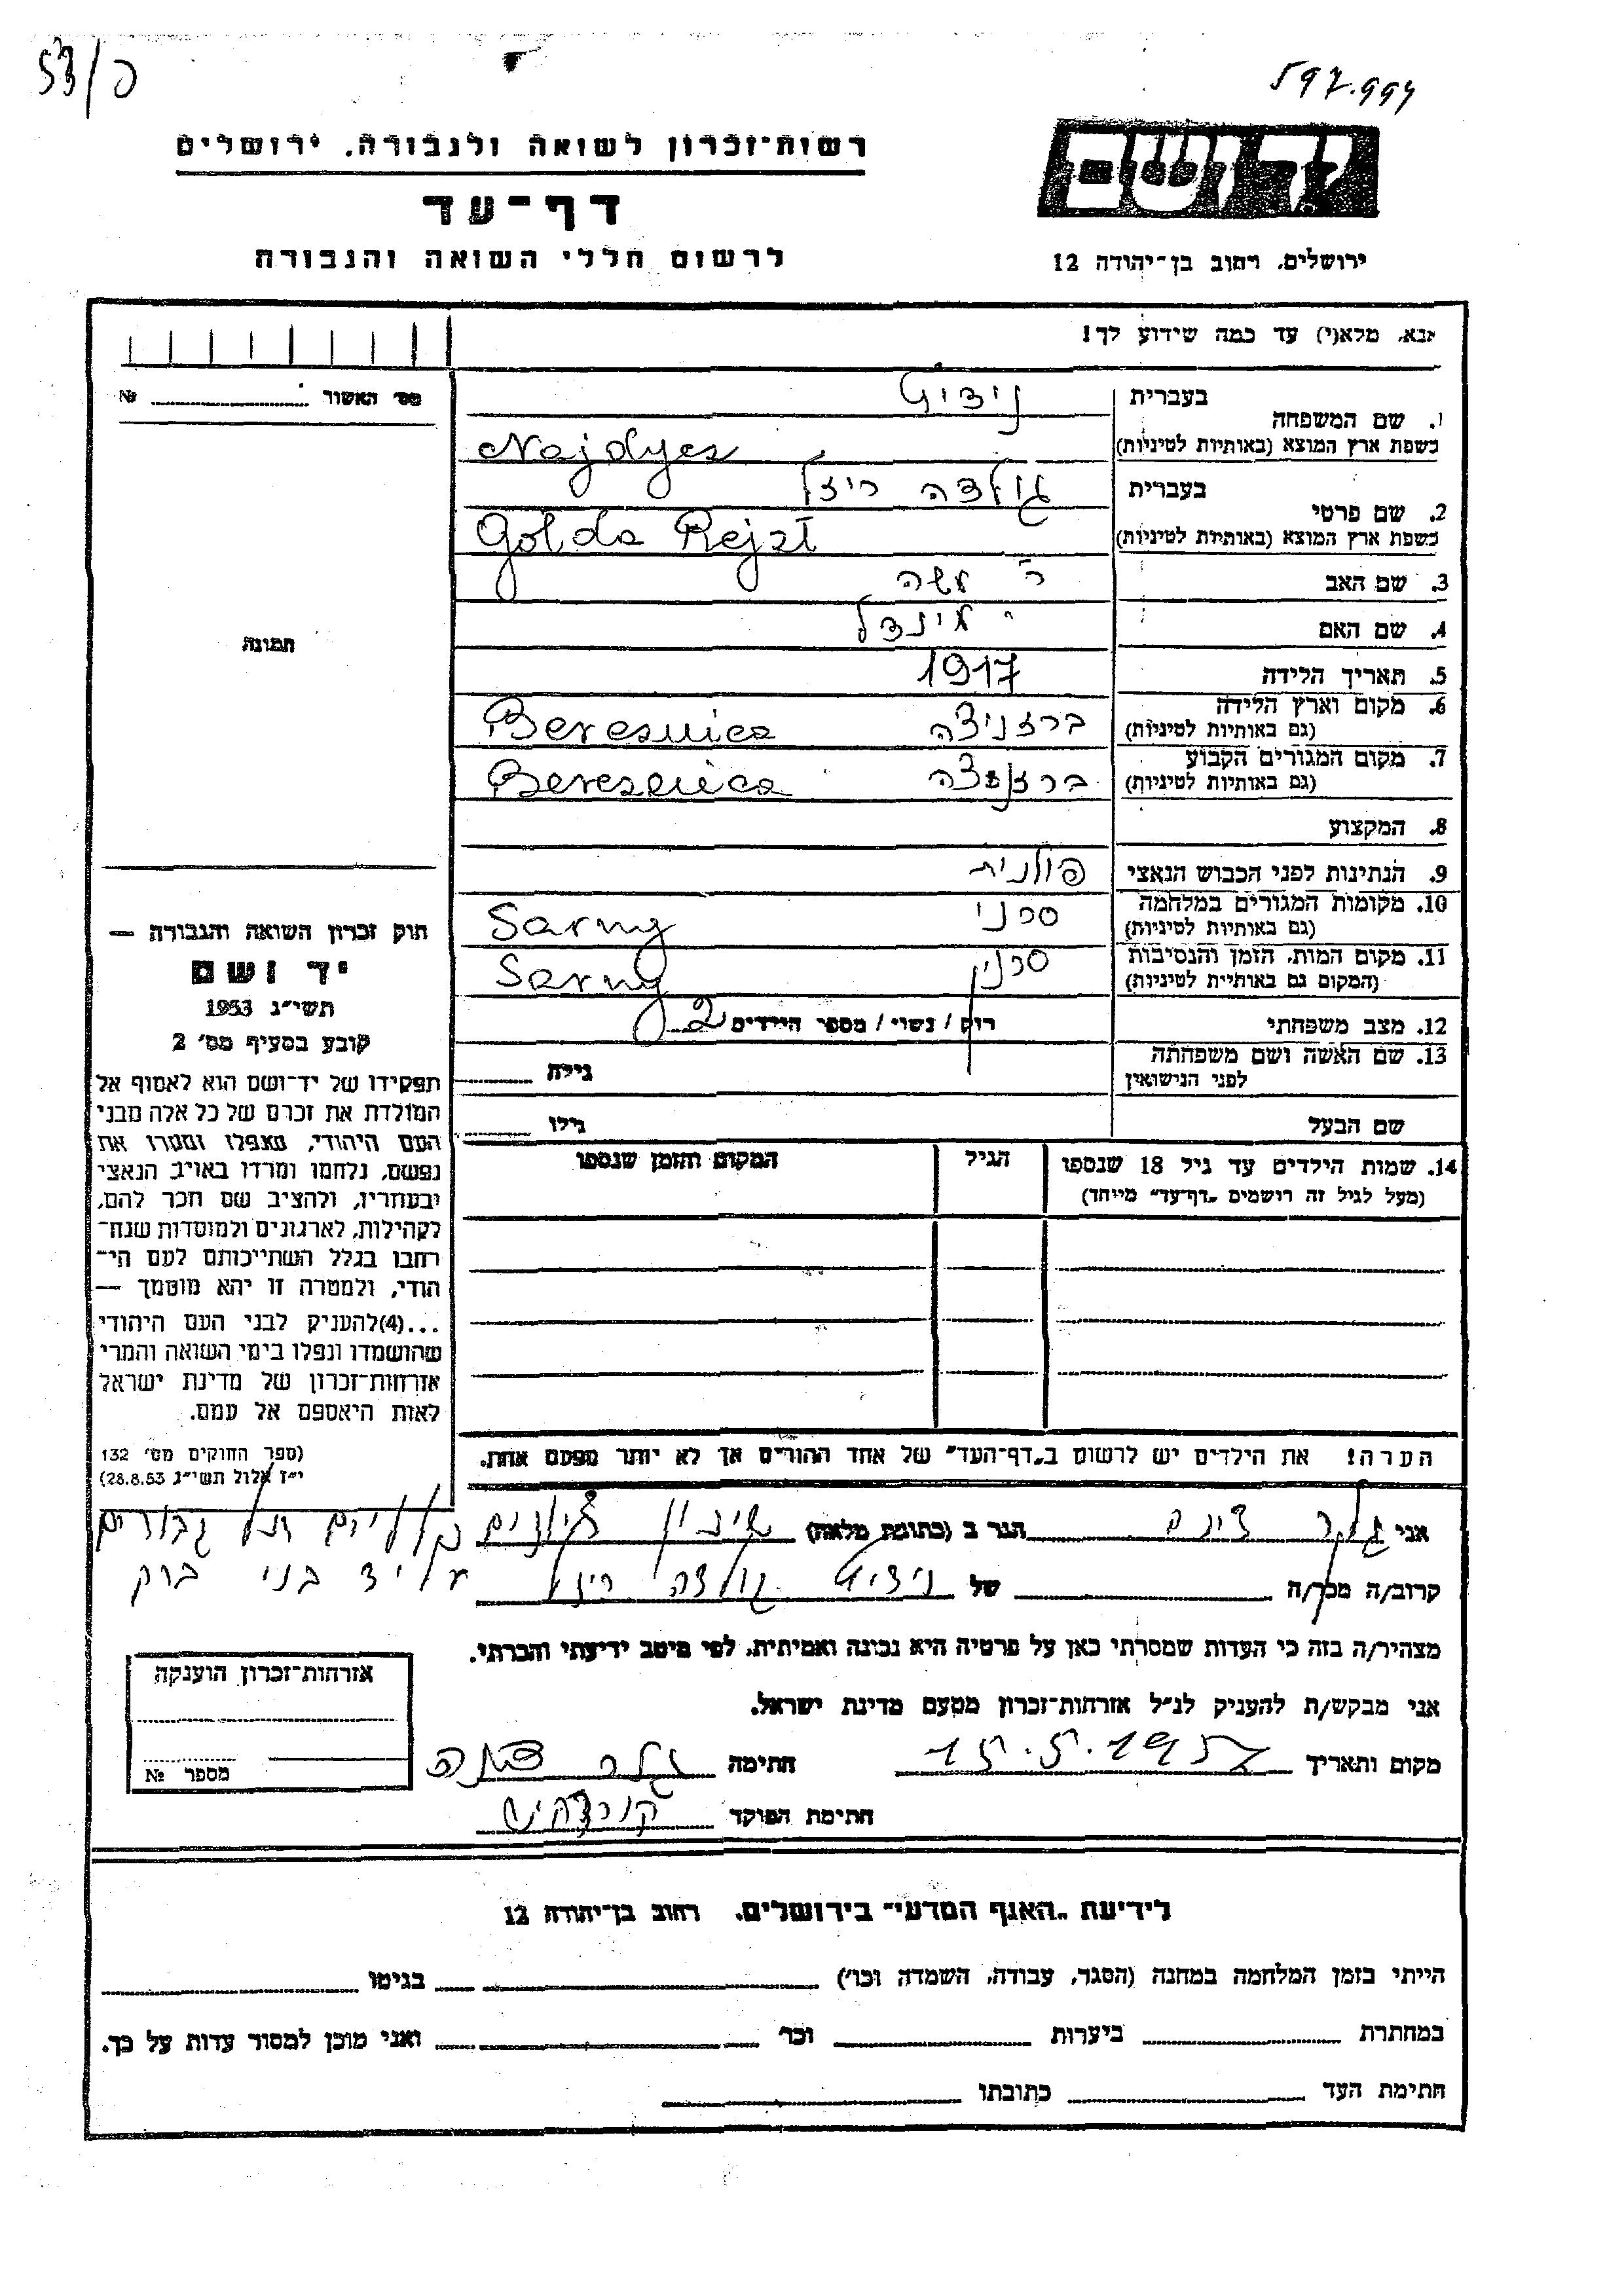 597.994
פ/53
רשות־זכרון לשואה ולגבורה. ירושלים
דף־עד
לרשום חללי השואה והגבורה
יד ושם
ירושלים, רחוב בן־יהודה 12
אנא, מלא(י) עד כמה שידוע לך!
מס׳ האשור № 
1. שם המשפחה
בעברית
כשפת ארץ המוצא (באותיות לטיניות) Najdyes
2. שם פרטי
בעברית גולדה ריזל
כשפת ארץ המוצא (באותיות לטיניות) Golda Rejzl
3. שם האב משה
4. שם האם מינדל
5. תאריך הלידה 1917
6. מקום וארץ הלידה ברזניצה Beresnica
(גם באותיות לטיניות)
7. מקום המגורים הקבוע ברזניצה Beresnica
(גם באותיות לטיניות)
8. המקצוע
9. הנתינות לפני הכבוש הנאצי פולנית
10. מקומות המגורים במלחמה סרני Sarny
(גם באותיות לטיניות)
11. מקום המות, הזמן והנסיבות סרני Sarny
(המקום גם באותיות לטיניות)
12. מצב משפחתי רווק / נשוי / מספר הילדים 2
13. שם האשה ושם משפחתה
לפני הנישואין
גילה
שם הבעל
גילו
14. שמות הילדים עד גיל 18 שנספו
(מעל לגיל זה רושמים „דף־עד״ מיוחד)
הגיל
המקום והזמן שנספו
הערה! את הילדים יש לרשום ב„דף־העד״ של אחד ההורים אך לא יותר מפעם אחת.
תמונה
חוק זכרון השואה והגבורה —
יד ושם
תשי״ג 1953
קובע בסעיף מס׳ 2
תפקידו של יד־ושם הוא לאסוף אל
המולדת את זכרם של כל אלה מבני
העם היהודי, שנפלו ומסרו את
נפשם, נלחמו ומרדו באויב הנאצי
ובעוזריו, ולהציב שם וזכר להם,
לקהילות, לארגונים ולמוסדות שנח־
רבו בגלל השתייכותם לעם הי־
הודי, ולמטרה זו יהא מוסמך —
...(4)להעניק לבני העם היהודי
שהושמדו ונפלו בימי השואה והמרי
אזרחות־זכרון של מדינת ישראל
לאות היאספם אל עמם.
(ספר החוקים מס׳ 132
י״ז אלול תשי״ג 28.8.53)
אני הגר ב (כתובת מלאה) שיכון
קרוב/ה מכר/ה של גולדה ריזל
על יד בני ברק
מצהיר/ה בזה כי העדות שמסרתי כאן על פרטיה היא נכונה ואמיתית, לפי מיטב ידיעתי והכרתי.
אני מבקש/ת להעניק לנ״ל אזרחות־זכרון מטעם מדינת ישראל.
מקום ותאריך 15.5.1957 חתימה
חתימת הפוקד
אזרחות־זכרון הוענקה
מספר №
לידיעת „האגף המדעי״ בירושלים. רחוב בן־יהודה 12
הייתי בזמן המלחמה במחנה (הסגר, עבודה, השמדה וכו׳) בגיטו
במחתרת ביערות וכו׳ ואני מוכן למסור עדות על כך.
חתימת העד כתובתו